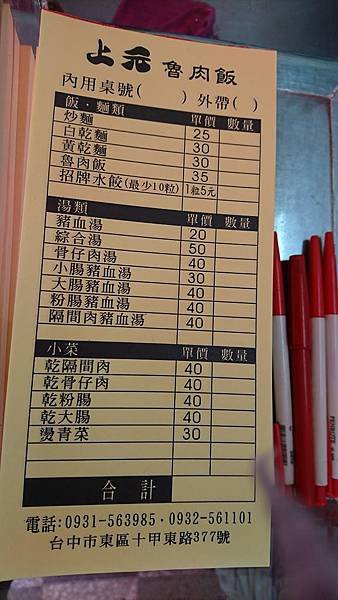 上元 魯肉飯
內用桌號(　　) 外帶(　)
飯·麵類 單價 數量
炒麵 25
白乾麵 30
黃乾麵 30
魯肉飯 35
招牌水餃(最少10粒) 1粒5元
湯類 單價 數量
豬血湯 20
綜合湯 50
骨仔肉湯 40
小腸豬血湯 30
大腸豬血湯 40
粉腸豬血湯 40
隔間肉豬血湯 40
小菜 單價 數量
乾隔間肉 40
乾骨仔肉 40
乾粉腸 40
乾大腸 40
燙青菜 30
合計
電話:0931-563985·0932-561101
台中市東區十甲東路377號